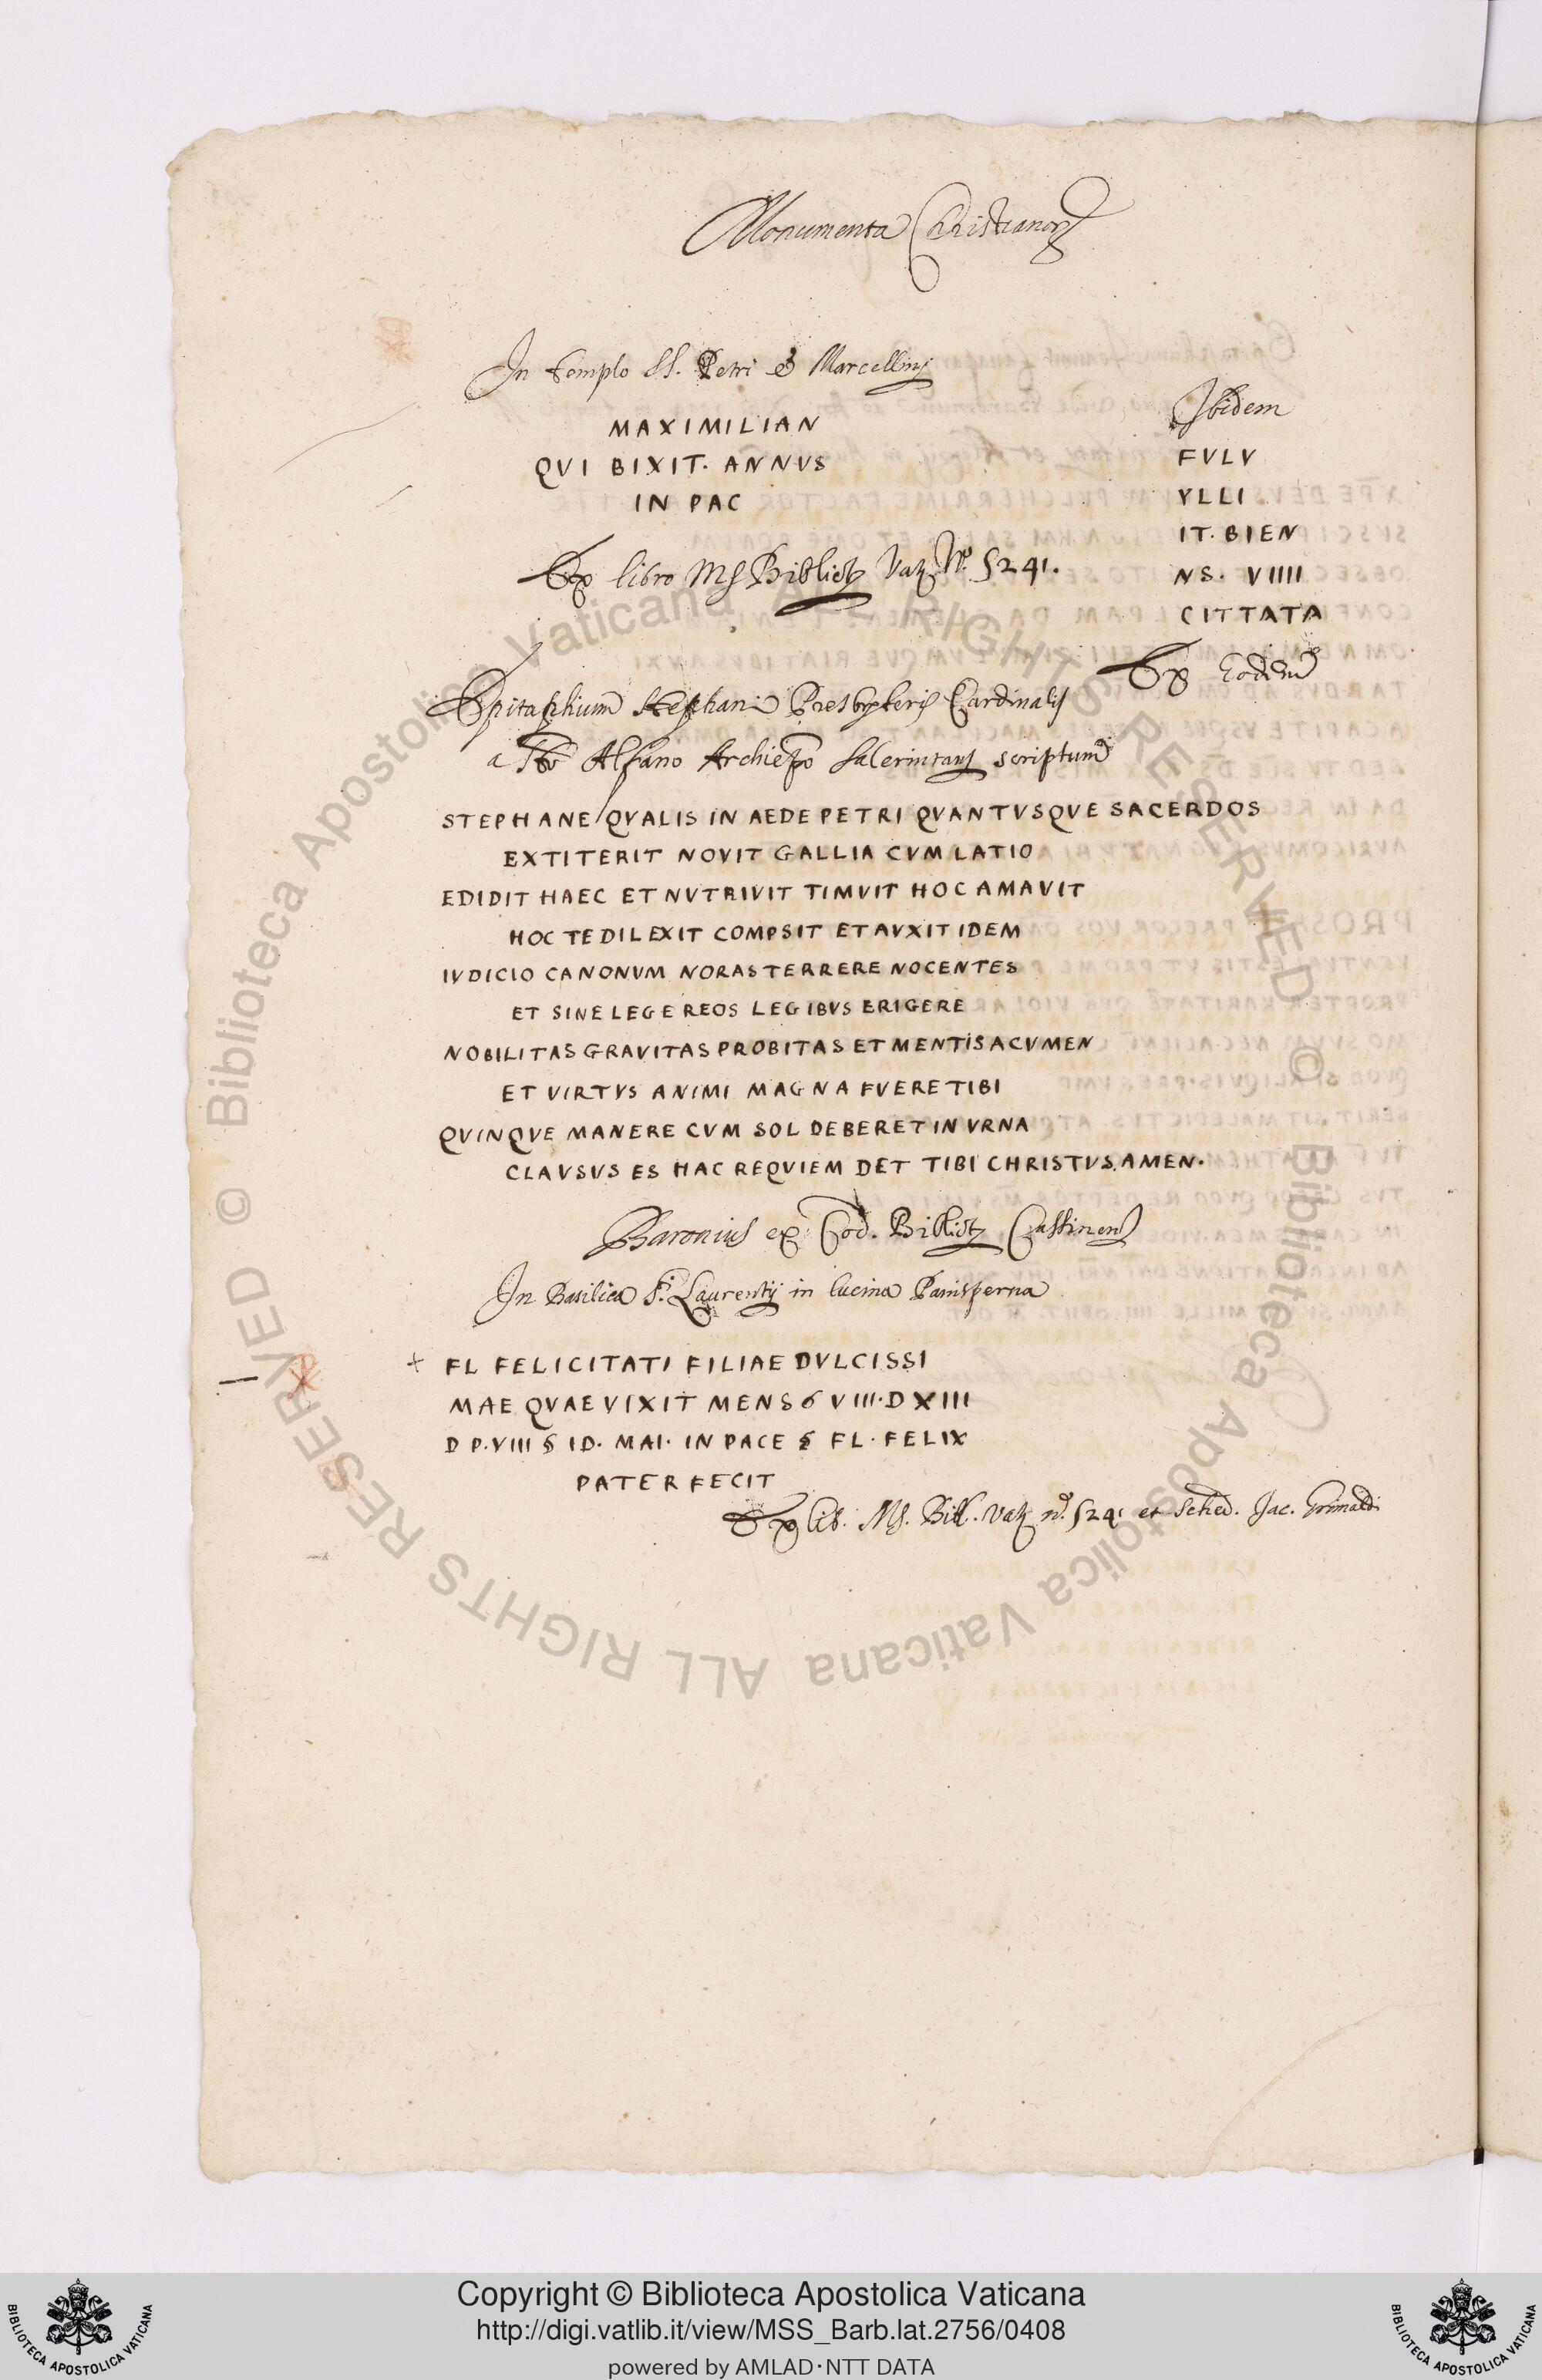 Monumenta Christianor
In templo SS. Petri et Marcellini
MAXIMILIAN
QVI BIXIT. ANNVS
IN PAC
Ex libro MS Bibliot Vat N.º 5241.
Ibidem
FVLV
VLLI
IT. BIEN
NS. VIIII
CITTATA
Ex Eodem
Epitaphium Stephani Presbyteri Cardinalis
a Alfano Archiepo Salernitano scriptum
STEPHANE/QVALIS IN AEDE PETRI QVANTVSQVE SACERDOS
EXTITERIT NOVIT GALLIA CVM LATIO
EDIDIT HAEC ET NVTRIVIT TIMVIT HOC AMAVIT
HOC TE DILEXIT COMPSIT ET AVXIT IDEM
IVDICIO CANONVM NORAS TERRERE NOCENTES
ET SINE LEGE REOS LEGIBVS ERIGERE
NOBILITAS GRAVITAS PROBITAS ET MENTIS ACVMEN
ET VIRTVS ANIMI MAGNA FVERE TIBI
QVINQVE MANERE CVM SOL DEBERET IN VRNA
CLAVSVS ES HAC REQVIEM DET TIBI CHRISTVS. AMEN.
Baronius ex Cod. Bibliot Cassinens
In Basilica S. Laurentij in lucina Panisperna
+ FL FELICITATI FILIAE DVLCISSI
MAE QVAE VIXIT MENS 6 VIII. D XIII
D P. VIII S ID. MAI. IN PACE S FL. FELIX
PATER FECIT
Ex lib. MS. Bibl. Vat nº. 5241 et Sched. Jac. Grimaldi
© Biblioteca Apostolica Vaticana ALL RIGHTS RESERVED
© Biblioteca Apostolica Vaticana ALL RIGHTS RESERVED
BIBLIOTECA APOSTOLICA VATICANA
Copyright © Biblioteca Apostolica Vaticana
http://digi.vatlib.it/view/MSS_Barb.lat.2756/0408
powered by AMLAD·NTT DATA
BIBLIOTECA APOSTOLICA VATICANA